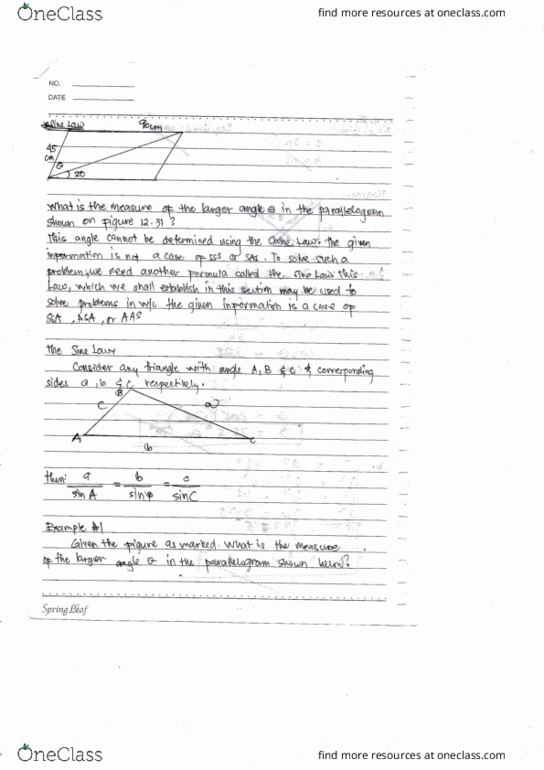 OneClass
find more resources at oneclass.com
NO.
DATE
Sine Law
90cm
45
cm
θ
20
What is the measure of the larger angle θ in the parallelogram
shown on figure 12.31?
This angle cannot be determined using the Cosine Law. the given
information is not a case of SSS or SAS. To solve such a
problem, we need another formula called the Sine Law this
Law, which we shall establish in this section may be used to
solve problems in w/c the given information is a case of
SSA, ASA, or AAS
the Sine Law
Consider any triangle with angle A, B & C & corresponding
sides a, b & c respectively.
B
c
a
A
C
b
then: a b c
= =
sin A sin B sin C
Example #1
Given the figure as marked. What is the measure
of the larger angle θ in the parallelogram shown here?
Spring Leaf
OneClass
find more resources at oneclass.com